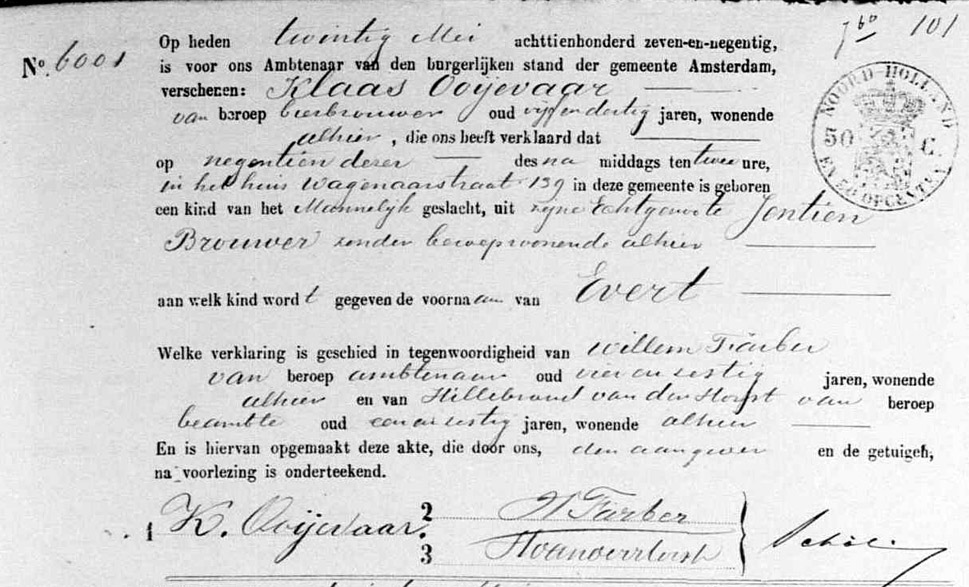 7bo 101
Op heden twintig Mei achttienhonderd zeven-en-negentig,
No. 6001 is voor ons Ambtenaar van den burgerlijken stand der gemeente Amsterdam,
verschenen: Klaas Ooijevaar
van beroep bierbrouwer oud vijfendertig jaren, wonende
alhier, die ons heeft verklaard dat
op negentien dezer des na middags ten twee ure,
in het huis Wagenaarstraat 139 in deze gemeente is geboren
een kind van het Mannelijk geslacht, uit zijne Echtgenoote Jentien
Brouwer zonder beroep wonende alhier
aan welk kind wordt gegeven de voornaam van Evert
Welke verklaring is geschied in tegenwoordigheid van Willem Färber
van beroep ambtenaar oud vier en sestig jaren, wonende
alhier en van Hillebrand van der Horst van beroep
beambte oud een en sestig jaren, wonende alhier
En is hiervan opgemaakt deze akte, die door ons, den aangever en de getuigen,
na voorlezing is onderteekend.
1 K. Ooijevaar. 2 W Farber
3
NOORD-HOLLAND
50 C.
EN 38 OPCENTEN